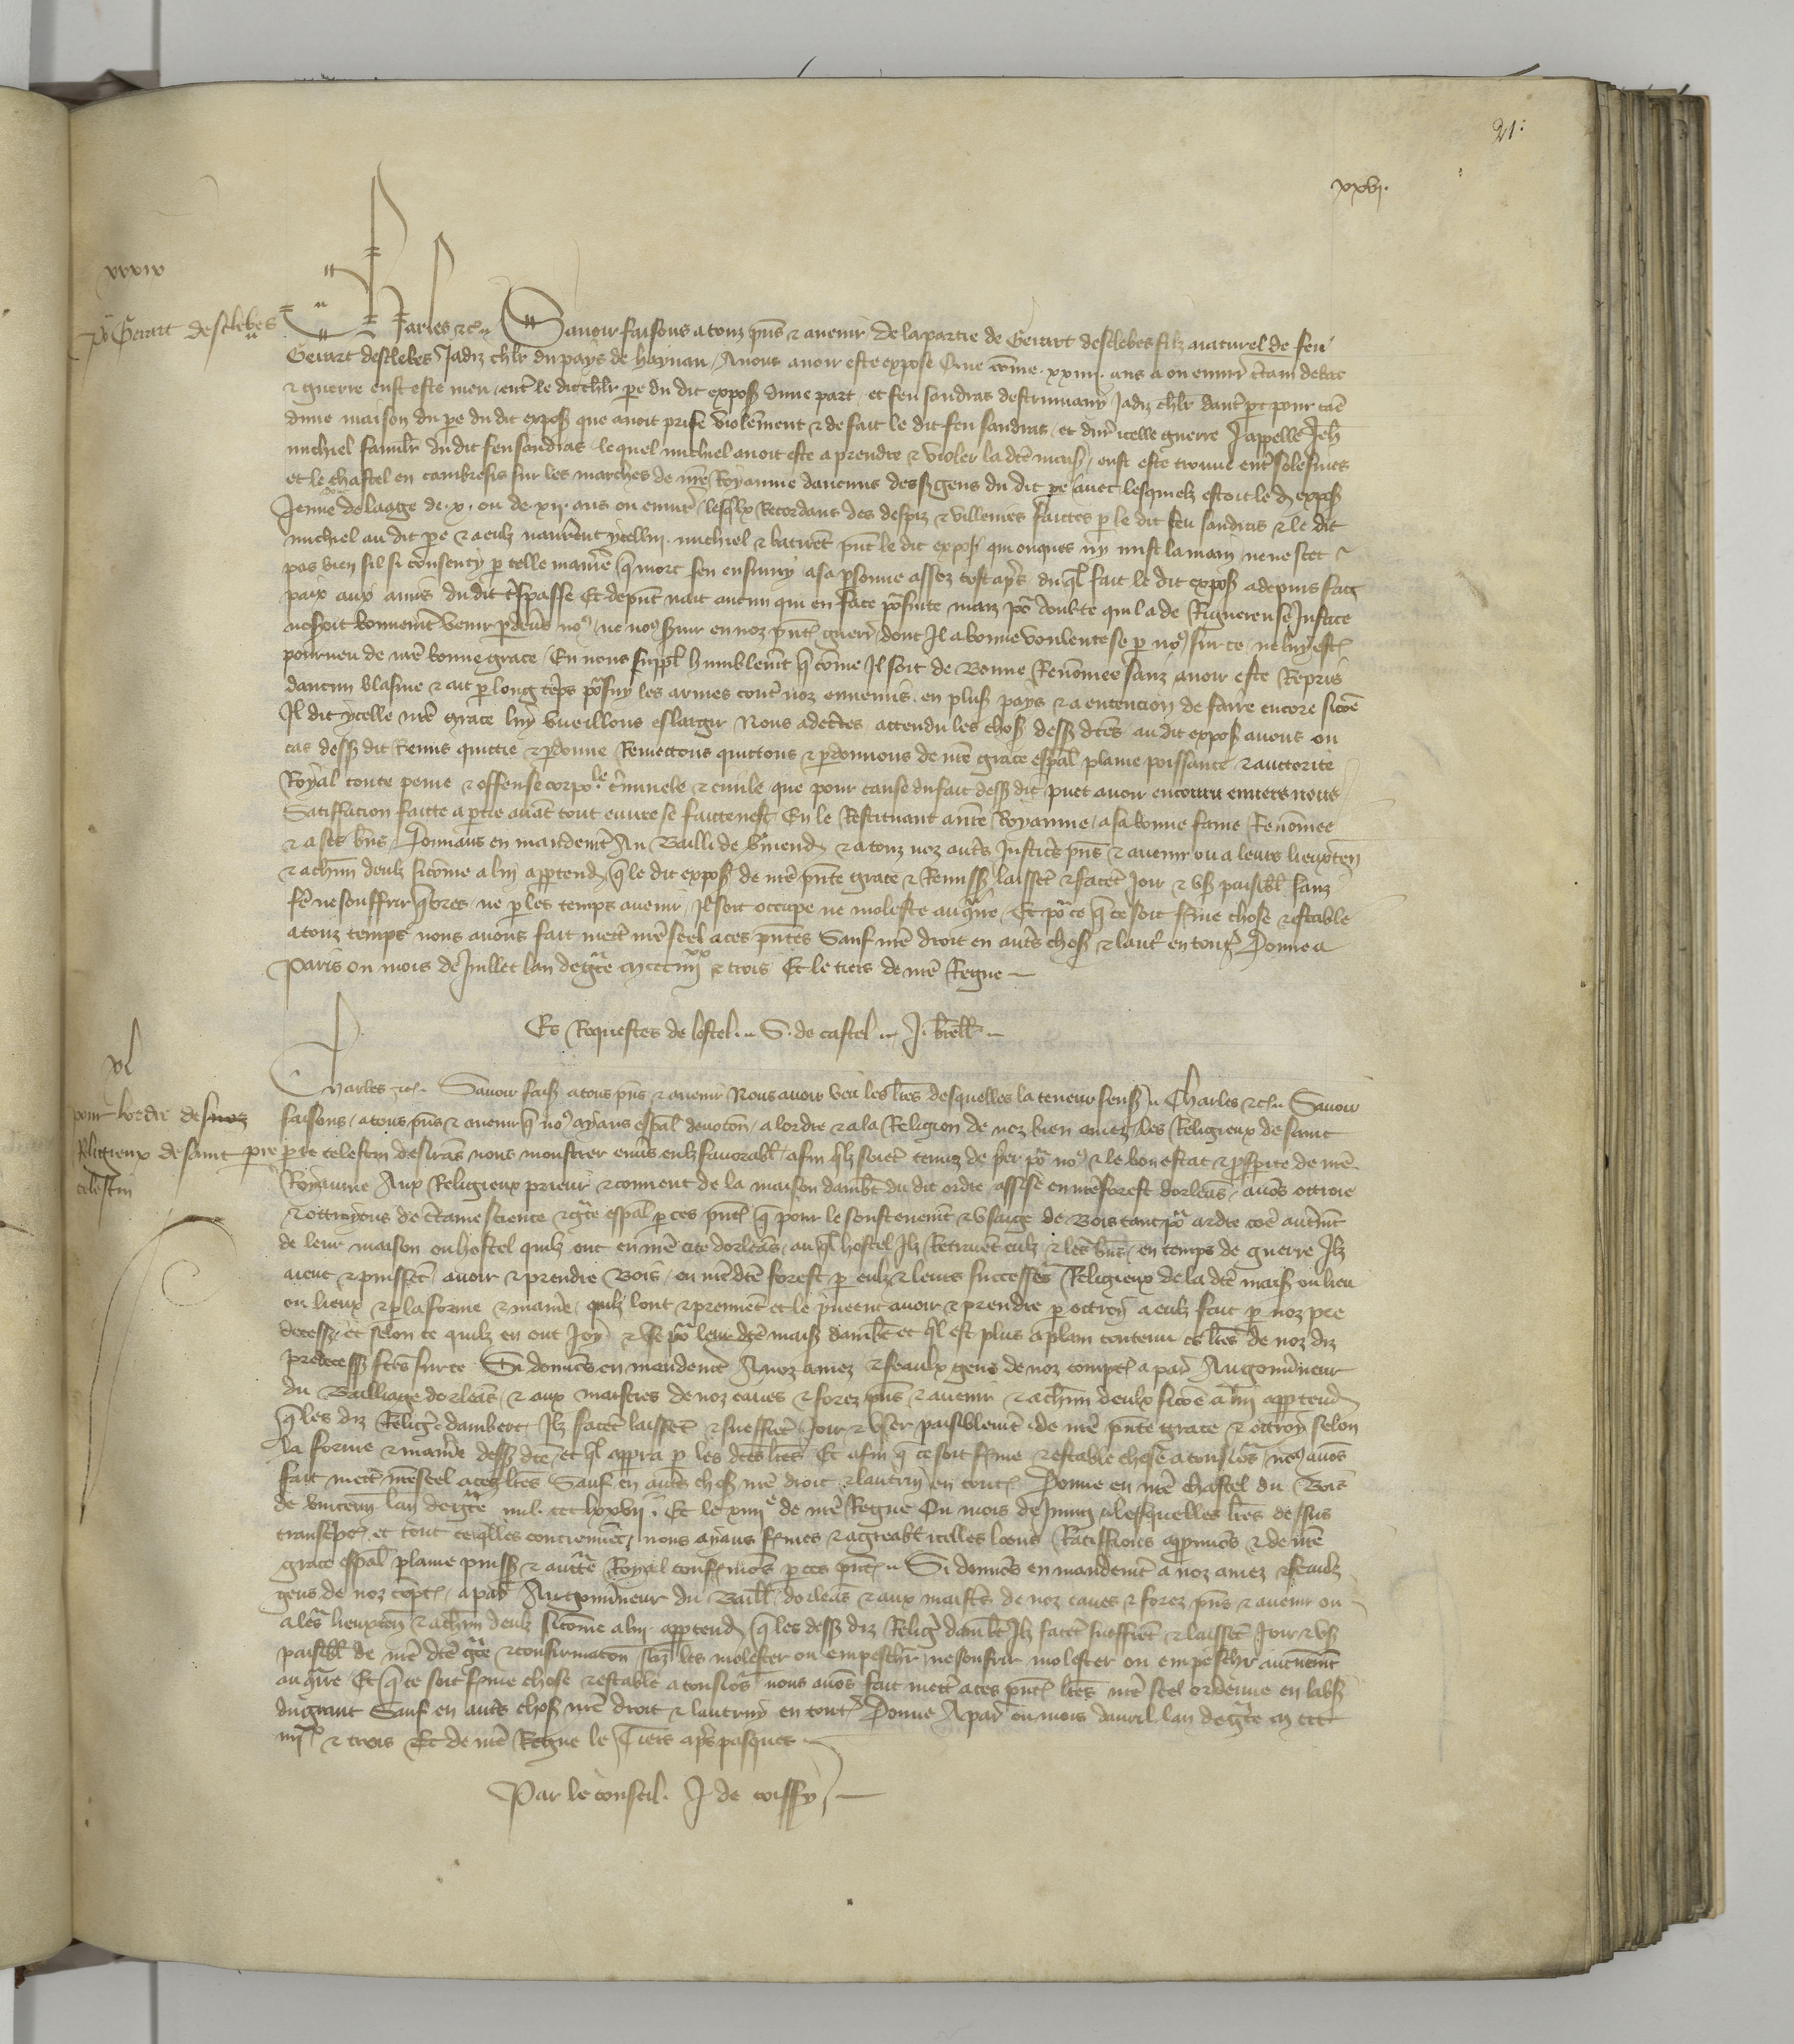 21
xxvj.
xxxix
Po Gerart desclebes
Charles etc. Savoir faisons a touz pns et avenir de la partie de Gerart desclebes filz naturel de feu
Gerart desclebes Jadiz chlr du pays de haynau Anous avoir este expose Que come xxiiij ans a ou environ certain debat
et guerre eust este meu entre le dit chlr pe du dit expos dune part et feu sandras jadiz chlr dautre pt pour cae
dune maison du pe du dit expos que avoit prise violement et de fait le dit feu sandras et dur icelle guerre J appelle Jeh
michiel familr du dit feu sandras lequel michiel avoit este a prendre et violer la dte mais eust este trouve ent solesmes
et le chastel en cambresis sur les marches de nre Royaume daucuns des gens du dit pe avec lesquelz estoit le d expos
Jenne de laage de x ou de xij ans ou environ lesqlx Recordans des despiz et villenies faictes p le dit feu sandras et le dit
michiel au dit pe et a eulz navrerent ycellui michiel et batirent pnt le dit expos qui onques ny mist la main ne ne scet
pas bien sil si consenty p telle maniere q mort sen ensuivy a sa psonne assez tost aps du ql fait le dit expos a depuis fait
paix aux amis du dit trespasse Et depuis nait aucun qui en face posuite maiz po doubte quil a de Riguereuse Justice
noseroit bonnement venir pdevs nos ne nos suir en noz pntes guerres dont Il a bonne voulente se p nos sur ce ne luy est
pourveu de nre bonne grace En nous suppl humblement q come Il soit de bonne Renommee sanz avoir este Repris
daucun blasme et ait p long teps posuy les armes cont noz ennemis en plus pays et a entencion de faire encore sicoe
Il dit ycelle nre grace luy vueillons eslargir Nous adcertes attendu les chos dess dtes au dit expos avons ou
cas dess dit Remis quictie et pdonne Remettons quictons et pdonnons de nre grace espal plaine poissance et auctorite
Royal toute peine et offense corpole criminele et civile que pour cause du fait dess dit puet avoir encouru envers nous
Satisfacion faicte a ptie avat tout euvre se faicte nest En le Restituant a nre Royaume a sa bonne fame Renomee
et a ses bns Donnans en mandemt Au Bailli de vermend et a touz noz autres Justicrs pns et avenir ou a leurs lieuxten
et a chun deulz sicome a lui apptend q le dit expos de nre pnte grace et Remiss laissent et facent Joir et us paisibl sanz
fe ne souffrir q ores ne p les temps avenir Il soit occupe ne moleste au ctre Et po ce q ce soit ferme chose et estable
a touz temps nous avons fait mett nre seel a ces pntes Sauf nre droit en autres chos et laut en toutes Donne a
Paris ou mois de Juillet lan de gce mccciiijxx et trois Et le tiers de nre Regne
Es Requestes de lostel. S. de castel. J. brell
xl
pour lordre des
Religieux de saint pie
celestin
Charles etc. Savoir fais a tous pns et avenir Nous avoir veu les ltres desquelles la teneur sens Charles etc. Savoir
faisons a tous pns et avenir q nos ayans espal devocon a lordre et a la Religion de noz bien amez les Religieux de saint
pre celestin desirans nous monstrer envs eulz favorabl afin qlz soient tenuz de pier po nos et le bon estat et pspite de nre
Royaume Aux Religieux prieur et couvent de la maison dambt du dit ordre assise en nre forest dorleas avos ottroie
et ottroyons de certaine science et gce espal p ces pntes q pour le soustenement et usaige de bois tant po ardre coe autrmt
de leur maison ou hostel quilz ont en nre cite dorleas au ql hostel Ilz Retraient eulz et les bns en temps de guerre Ilz
aient et puissent avoir et prendre bois en nre dte forest p eulz et leurs successes Religieux de la dte mais ou lieu
ou lieux et p la forme et manie quilz lont et prennent et le peuent avoir et prendre p ottroy a eulz fait p noz pre
decess et selon ce quilz en ont Joy et use po leur dte mais dambt et ql est plus a plain contenu es ltres de noz diz
predecess ftes sur ce Si donons en mandemt A noz amez et feaulx gens de noz comptes a par Au gouverneur
du Bailliage dorleas et aux maistres de noz eaues et forez pns et avenir et a chun deulx sicoe a lui apptend
q les diz Religx dambert Ilz facent laissent et sueffrent Joir et user paisiblement de nre pnte grace et ottroy selon
la forme et maniere dess dte et ql appra p les dtes ltres Et afin q ce soit ferme et estable chose a tousios nos avos
fait mett nre seel a ces ltres Sauf en autres chos nre droit et lautruy en toutes Donne en nre chastel du Bois
de vincenn lan de gce mil ccc lxxvij Et le xiiije de nre Regne Ou mois de Juing lesquelles ltres dessus
transcptes et tout ce qelles contiennent nous ayans fermes et agreabl icelles loons Ratiffions appvuons et de nre
grace espal plaine puiss et aucte Royal confermons p ces pntes Si donons en mandemt a noz amez et feaulz
gens de noz coptes a par Au gouverneur du Baill dorleas et aux maistres de noz eaues et forez pns et avenir ou
a leurs lieuxten et a chun deulz sicome a lui apptend q les dess diz Religx dambt Ilz facent sueffrent et laissent Joir et us
paisibl de nre dte gce et confirmacon sanz les molester ou empeschr ne soufrir molester ou empeschr aucunemt
au ctraire Et q ce soit ferme chose et estable a tousios nous avos fait mett a ces pntes ltres nre seel ordenne en labs
du grant Sauf en autres chos nre droit et lautruy en toutes Donne A par ou mois davril lan de gce m ccc
iiijxx et trois Et de nre Regne le Tiers aps pasques
Par le conseil. J de coiffy